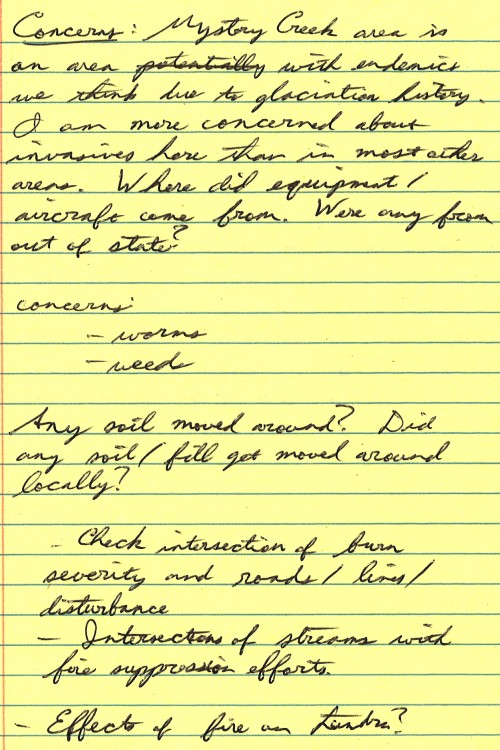 Concerns: Mystery Creek area is
an area potentially with endemics
we think due to glaciation history.
I am more concerned about
invasives here than in most other
areas. Where did equipment/
aircraft come from. Were any from
out of state?
concerns:
- worms
- weeds
Any soil moved around? Did
any soil/fill get moved around
locally?
- Check intersection of burn
severity and roads/lines/
disturbance
- Intersections of streams with
fire suppression efforts.
- Effects of fire on tundra?